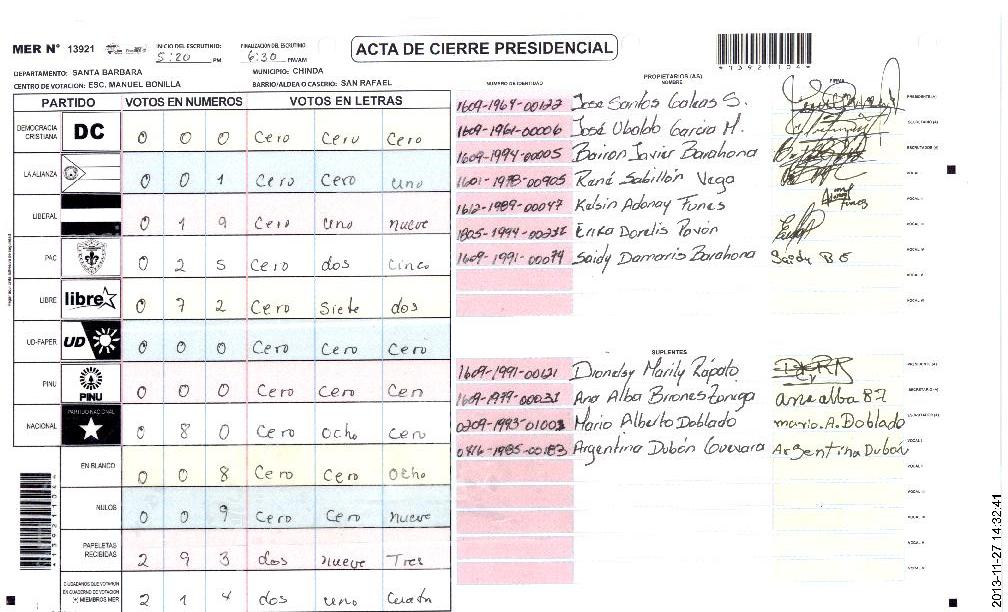 MER Nº 13921 INICIO DEL ESCRUTINIO: 5:20 PM FINALIZACION DEL ESCRUTINIO: 6:30 PM/AM ACTA DE CIERRE PRESIDENCIAL
DEPARTAMENTO: SANTA BARBARA MUNICIPIO: CHINDA
CENTRO DE VOTACION: ESC. MANUEL BONILLA BARRIO/ALDEA O CASERIO: SAN RAFAEL
PARTIDO VOTOS EN NUMEROS VOTOS EN LETRAS
DEMOCRACIA CRISTIANA DC 0 0 0 Cero Cero Cero
LA ALIANZA 0 0 1 Cero Cero uno
LIBERAL 0 1 9 Cero uno nueve
PAC 0 2 5 Cero dos Cinco
LIBRE libre 0 7 2 Cero Siete dos
UD-FAPER UD 0 0 0 Cero Cero Cero
PINU PINU 0 0 0 Cero Cero Cero
NACIONAL PARTIDO NACIONAL 0 8 0 Cero Ocho Cero
EN BLANCO 0 0 8 Cero Cero Ocho
NULOS 0 0 9 Cero Cero nueve
PAPELETAS RECIBIDAS 2 9 3 dos nueve Tres
CIUDADANOS QUE VOTARON EN CUADERNO DE VOTACION (+) MIEMBROS MER 2 1 4 dos uno Cuatro
PROPIETARIOS (AS)
NUMERO DE IDENTIDAD NOMBRE FIRMA
1609-1964-00122 Jose Santos Galeas S. PRESIDENTE (A)
1609-1961-00006 José Ubaldo Garcia M. SECRETARIO (A)
1609-1994-00005 Bairon Javier Barahona ESCRUTADOR (A)
1601-1978-00905 René Sabillón Vega VOCAL I
1612-1989-00047 Kelsin Adonay Funes VOCAL II
1805-1994-00232 Erika Dorelis Pavón VOCAL III
1609-1991-00074 Saidy Damaris Barahona Saidy B E VOCAL IV
VOCAL V
VOCAL VI
SUPLENTES
1609-1991-00121 Dionelsy Marily Rápalo PRESIDENTE (A)
1609-1979-00031 Ana Alba Briones Zuniga ana alba 87 SECRETARIO (A)
0209-1993-01001 Mario Alberto Doblado mario. A. Doblado ESCRUTADOR (A)
0416-1985-00183 Argentina Dubón Guevara Argentina Dubón VOCAL I
VOCAL II
VOCAL III
VOCAL IV
VOCAL V
VOCAL VI
2013-11-27 14:32:41